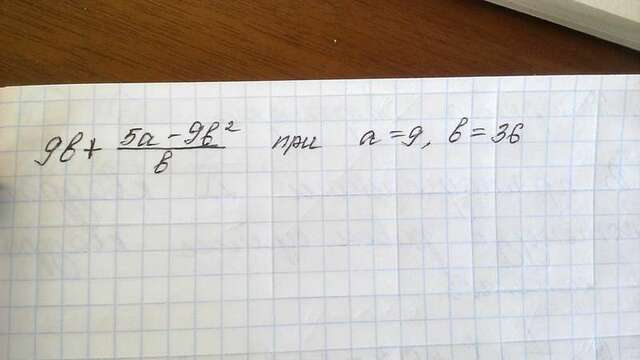 9b + \frac{5a - 9b^2}{b} при a = 9, b = 36